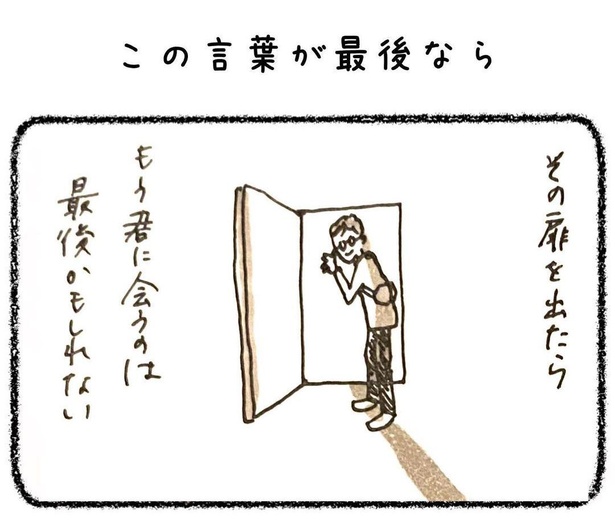 この言葉が最後なら
その扉を出たら
もう君に会うのは
最後かもしれない